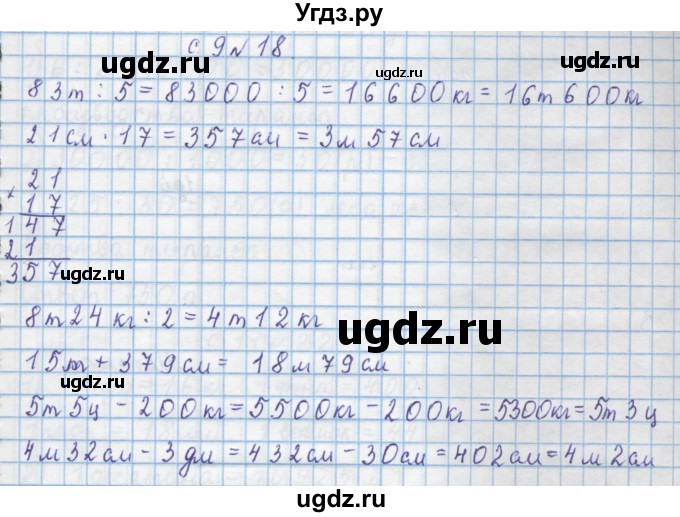 Угдз.ру
с 9 № 18
ugdz.ru ugdz.ru ugdz.ru
83т : 5 = 83000 : 5 = 16600кг = 16т 600кг
21см · 17 = 357см = 3м 57см
21
× 17
147
21
357
ugdz.ru ugdz.ru
8т 24кг : 2 = 4т 12кг
ugdz.ru
15м + 379см = 18м 79см
5т 5ц - 200кг = 5500кг - 200кг = 5300кг = 5т 3ц
ugdz.ru ugdz.ru
4м 32см - 3дм = 432см - 30см = 402см = 4м 2см
ugdz.ru